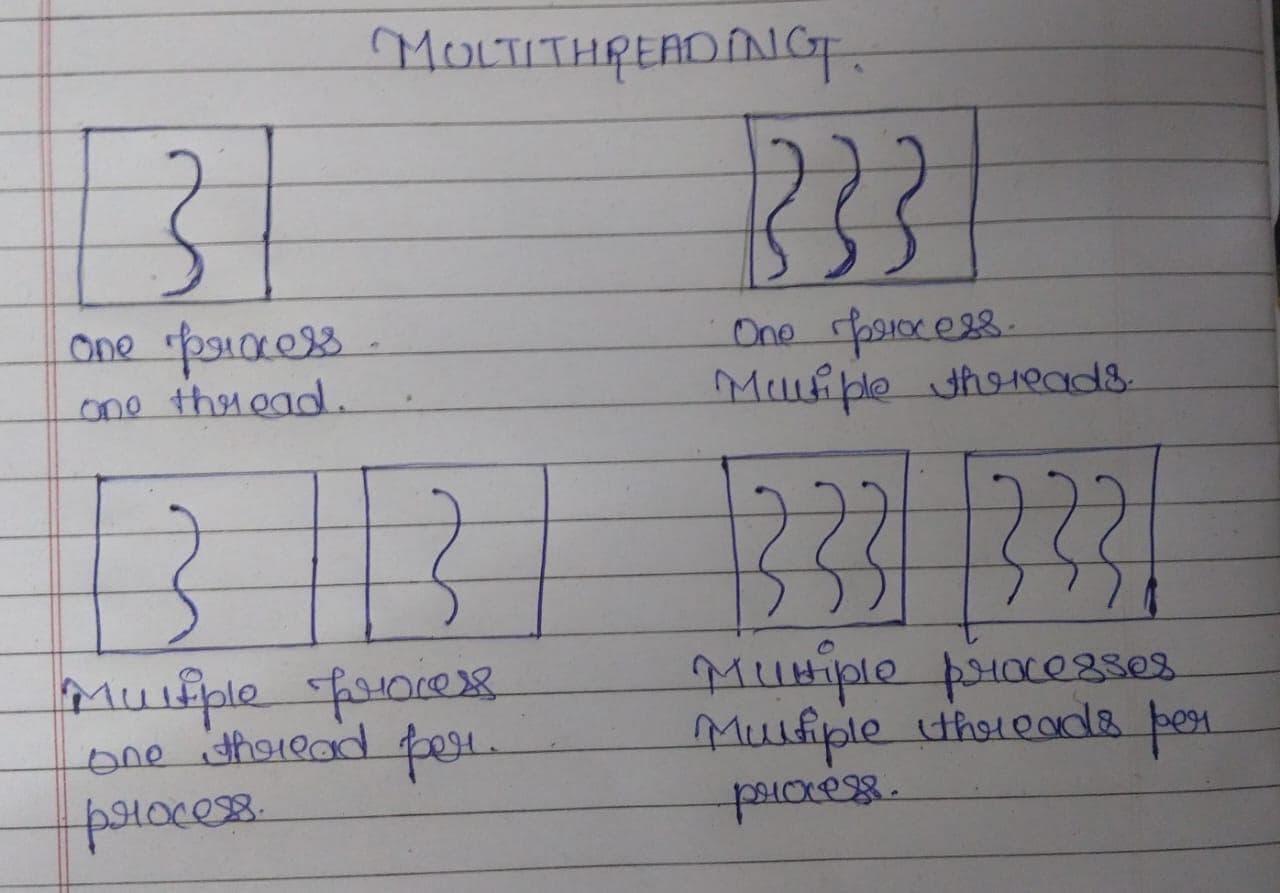 MULTITHREADING.
one process.
one thread.
One process.
Multiple threads.
Multiple process
one thread per.
process.
Multiple processes
Multiple threads per
process.